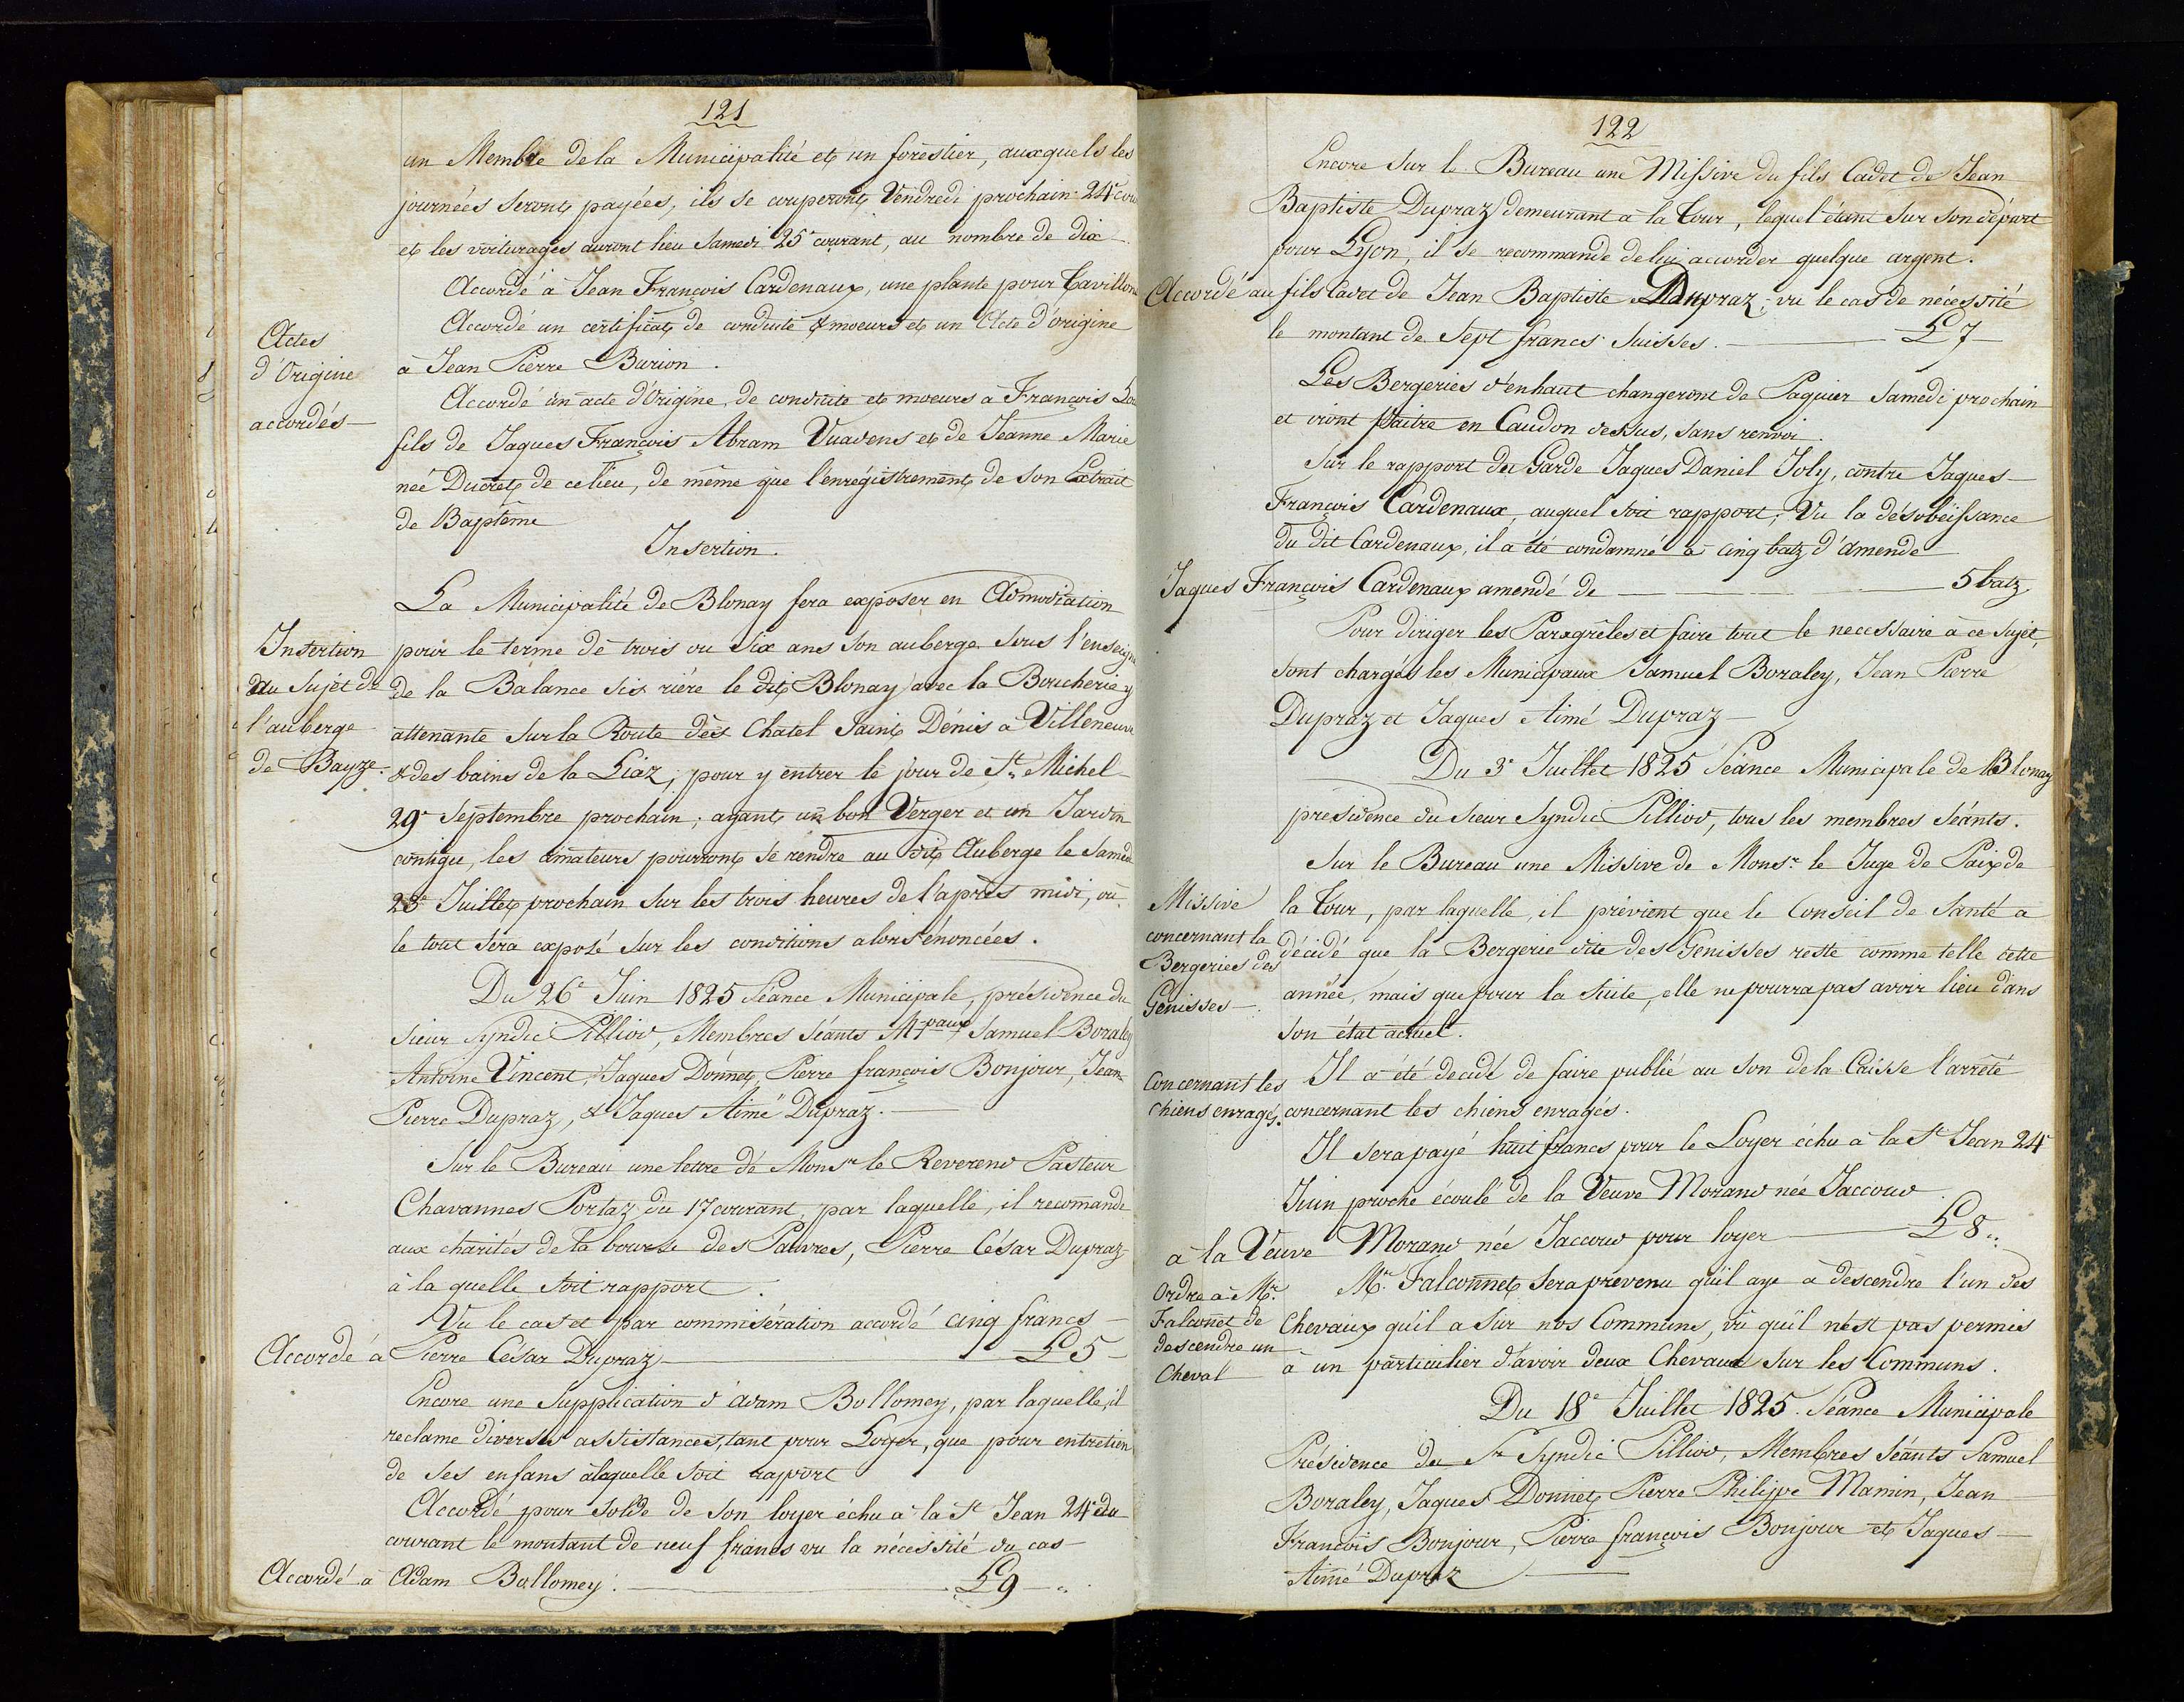 121
un Membre de la Municipalité et un forestier, auxquels les
journées seront payées, ils se couperont Vendredi prochain 24e
et les voiturages auront lieu Samedi 25e courant, au nombre de dix
Accordé à Jean François Cardenaux, une plante pour Tavillons
Accordé un certificat de conduite & moeurs et un Acte d'origine
Actes
d'Origine
accordés
à Jean Pierre Burion.
Accordé un acte d'Origine, de conduite et moeurs à François
fils de Jaques François Abram Vuadens et de Jeanne Marie
née Ducret de ce lieu, de même que l'enrégistrement de son Extrait
de Baptême
Insertion.
La Municipalité de Blonay fera exposer en Admodiation
Insertion
au Sujet de
l'auberge
de Bayze.
pour le terme de trois ou Six ans son auberge sous l'enseigne
de la Balance sis rière le dit Blonay avec la Boucherie y
attenante sur la Route dès Chatel Saint Dénis à Villeneuve
& des bains de la Liaz; pour y entrer le jour de St Michel
29e Septembre prochain; ayant un bon Verger et un Jardin
contigu, les amateurs pourront se rendre au dit Auberge le Samedi
23e Juillet prochain sur les trois heures de l'après midi, où
le tout sera exposé sur les conditions alors énoncées.
Du 26e Juin 1825 Séance Municipale, présidence du
Sieur Syndic Pilliod, Membres séants Mpaux Samuel Boraley
Antoine Vincent, Jaques Donnet, Pierre françois Bonjour, Jean
Pierre Dupraz, & Jaques Aimé Dupraz.
Sur le Bureau une lettre de Monsr le Reverend Pasteur
Chavannes Portaz du 17 courant, par laquelle, il recomande
aux charités de la bourse des Pauvres, Pierre César Dupraz
à la quelle soit rapport.
Vu le cas et par commisération accordé cinq francs
Accordé à Pierre César Dupraz L 5
Encore une Supplication d'adam Bollomey, par laquelle, il
reclame diverses assistances, tant pour Loyer, que pour entretien
de ses enfans à laquelle soit rapport
Accordé pour solde de son loyer échu à la St Jean 24e du
courant le montant de neuf francs vu la nécessité du cas
Accordé à Adam Bollomey. L 9
122
Encore sur le Bureau une Missive du fils Cadet de Jean
Baptiste Dupraz demeurant à la Tour, lequel étant sur son départ
pour Lyon, il se recommande de lui accorder quelque argent.
Accordé au fils Cadet de Jean Baptiste Dupraz; vu le cas de nécessité
le montant de Sept francs Suisses. L 7
Les Bergeries d'enhaut changeront de Paquier Samedi prochain
et iront Paitre en Caudon dessus, sans renvoi.
Sur le rapport du Garde Jaques Daniel Joly, contre Jaques
François Cardenaux, auquel soit rapport; Vu la désobéissance
du dit Cardenaux, il a été condamné à cinq batz d'amende
Jaques François Cardenaux amendé de 5 batz
Pour diriger les Paragrèles et faire tout le necessaire à ce sujet,
sont chargés les Municipaux Samuel Boraley, Jean Pierre
Dupraz et Jaques Aimé Dupraz
Du 3e Juillet 1825 Séance Municipale de Blonay
présidence du Sieur Syndic Pilliod, tous les membres séants.
Sur le Bureau une Missive de Monsr le Juge de Paix de
Missive
concernant la
Bergeries des
Genisses
la Tour, par laquelle, il prévient que le Conseil de Santé a
décidé que la Bergerie dite des Genisses reste comme telle cette
année, mais que pour la suite, elle ne pourra pas avoir lieu dans
son état actuel.
Concernant les
Chiens enragés.
Il a été decidé de faire publié au son de la Caisse l'arrêté
concernant les chiens enragés.
Il sera payé huit francs pour le Loyer échu à la St Jean 24e
Juin proche écoulé de la Veuve Morand née Jaccoud
a la Veuve Morand née Jaccoud pour loyer L 8
Ordre à Mr
Falconnet de
descendre un
Cheval
Mr Falconnet sera prévenu qu'il aye à descendre l'un des
Chevaux qu'il a sur nos Communs, vû qu'il n'est pas permis
à un particulier d'avoir deux Chevaux sur les Communs.
Du 18e Juillet 1825. Séance Municipale
Présidence du Sr Syndic Pilliod, Membres Séants Samuel
Boraley, Jaques Donnet, Pierre Philippe Mamin, Jean
François Bonjour, Pierre françois Bonjour et Jaques
Aimé Dupraz